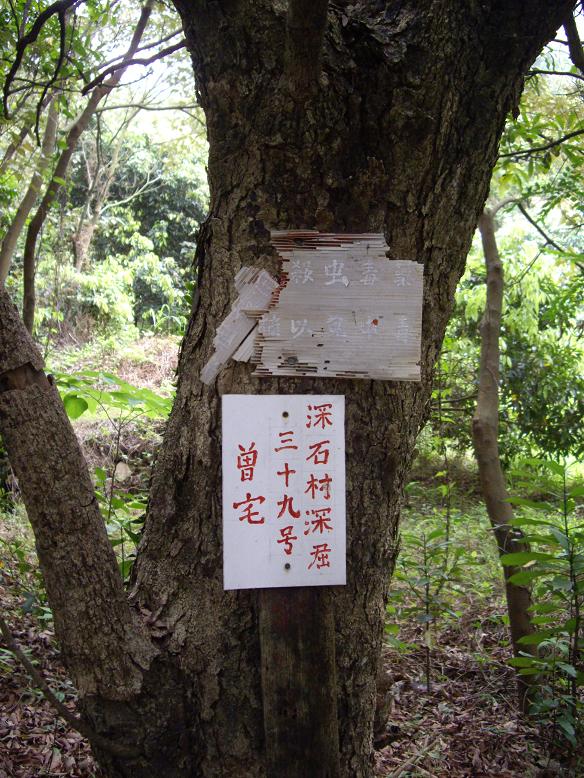 殺虫毒藥
以免中毒
深石村深屈
三十九号
曾宅